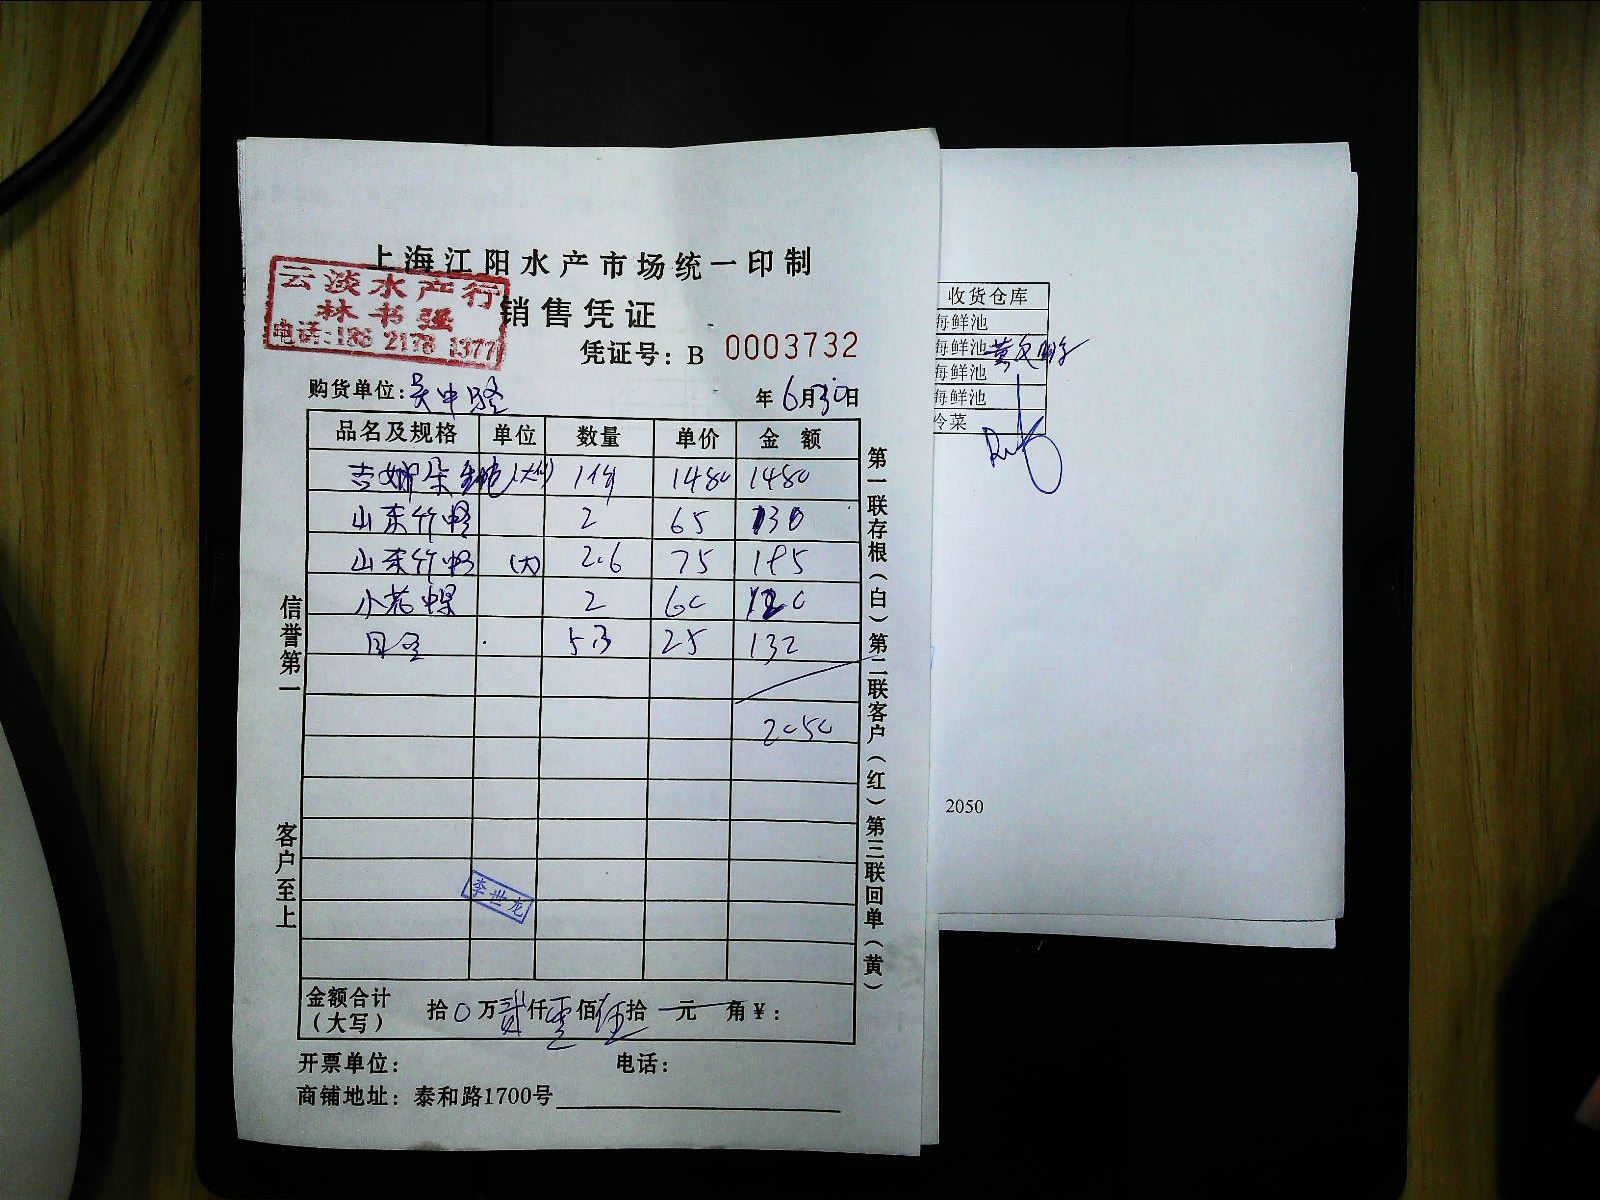 上海江阳水产市场统一印制
云淡水产行
林书强
电话:186 2178 1377
销售凭证
凭证号: B 0003732
购货单位: 年6月30日
品名及规格 单位 数量 单价 金额
吉娜朵 1 1480 1480
山东竹蛏 2 65 130
山东竹蛏 (大) 2.6 75 195
小花螺 2 60 120
5.3 25 132
2050
李世龙
金额合计(大写) 拾0万贰仟零佰伍拾 元 角¥:
开票单位: 电话:
商铺地址: 泰和路1700号
信誉第一
客户至上
第一联存根(白)第二联客户(红)第三联回单(黄)
收货仓库
海鲜池
海鲜池
海鲜池
海鲜池
冷菜
2050